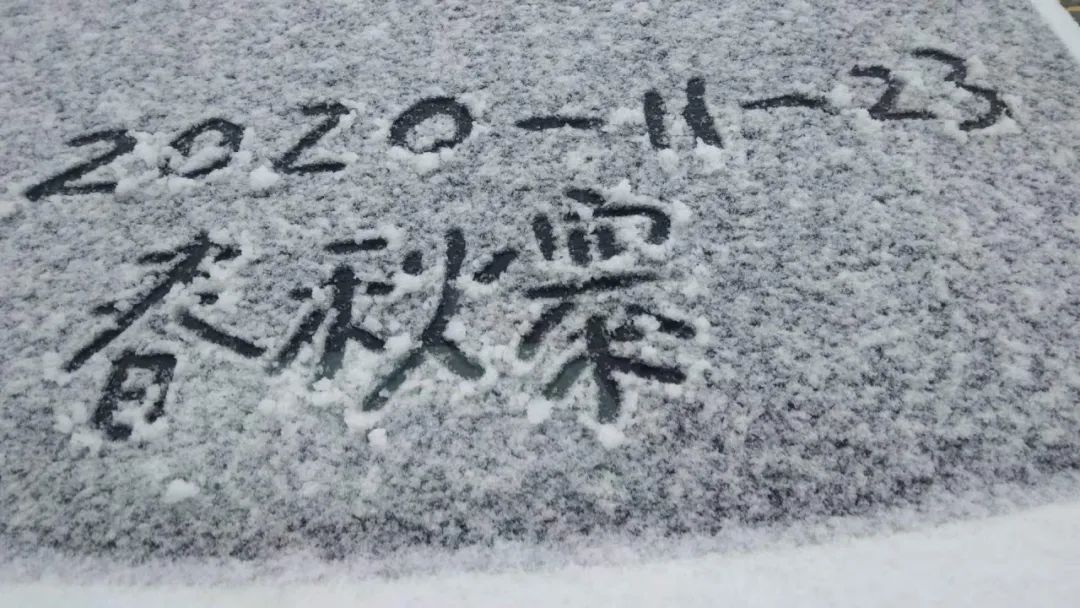 2020-11-23
春秋寨